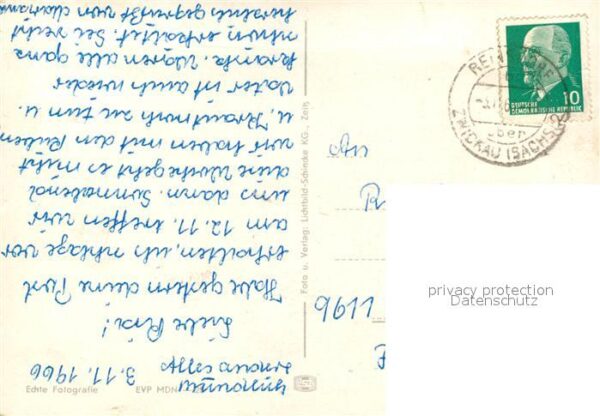 3.11.1966
Liebe Rosi!
Habe gestern deine Post
erhalten, ich schlage vor
am 12.11. treffen wir
uns dann. Sonnabend
diese Woche geht es nicht
wir haben mit den Rüben
u. Kraut noch zu tun u.
Vater ist auch wieder
krank. Waren alle ganz
schön erkältet. Sei recht
herzlichst gegrüßt von
Echte Fotografie
EVP MDN
Foto u. Verlag: Lichtbild-Schincke KG., Zeitz
10
DEUTSCHE
DEMOKRATISCHE REPUBLIK
über
ZWICKAU (SACHS)2
9611
privacy protection
Datenschutz